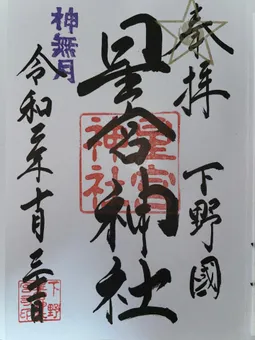 奉拝
下野國
星宮神社
星宮神社
神無月
令和二年十月
下野